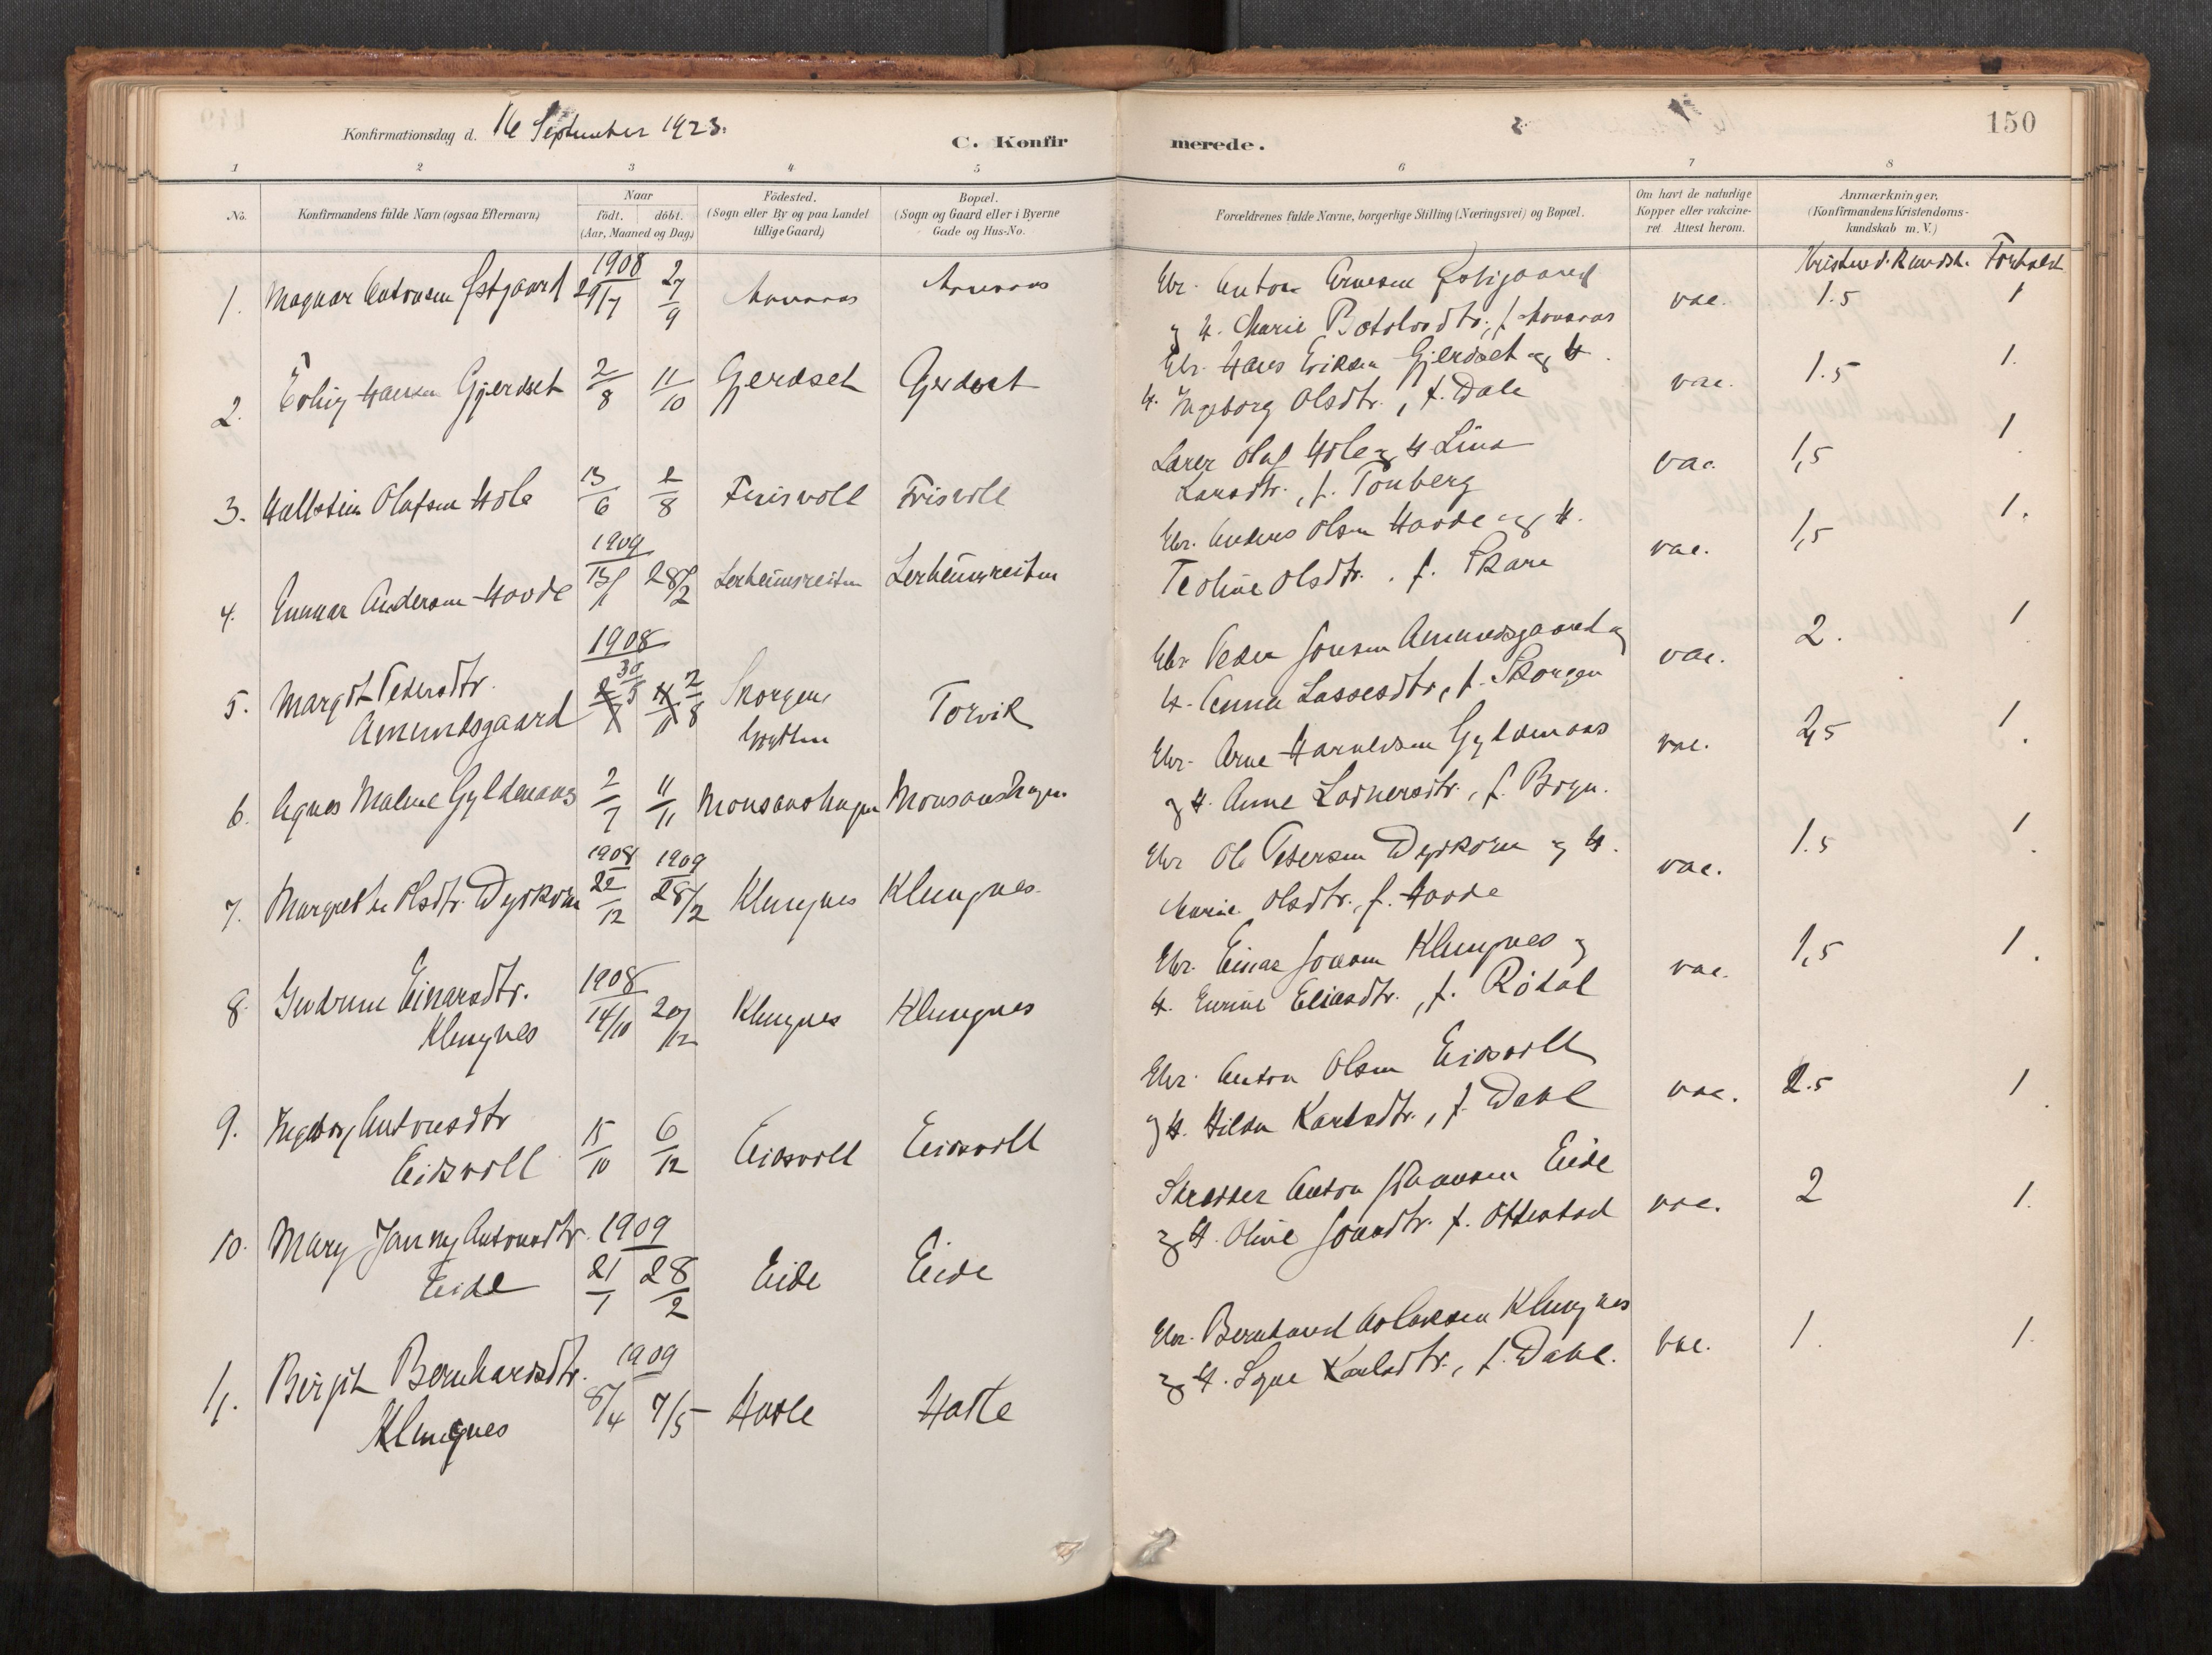 Konfirmationsdag d. 16 September 1923.
C. Konfirmerede.
150
1 2 3 4 5 6 7 8
No.
Konfirmandens fulde Navn (ogsaa Efternavn)
Naar
födt. döbt.
(Aar, Maaned og Dag)
Födested.
(Sogn eller By og paa Landet
tillige Gaard)
Bopæl.
(Sogn og Gaard eller i Byerne
Gade og Hus-No.
Forældrenes fulde Navne, borgerlige Stilling (Næringsvei) og Bopæl.
Om havt de naturlige
Kopper eller vakcine-
ret. Attest herom.
Anmærkninger.
(Konfirmandens Kristendoms-
kundskab m. V.)
Kristend. Kundsk. Forhold
1908
1. Magnar Antonsen Østgaard 29/7 27/9
Gbr. Anton Arnesen Østigaard
og H. Marie f.
vac. 1.5 1
2. Hansen Gjerdset 2/8 11/10 Gjerdset Gjerdset
Gbr. Hans Eriksen Gjerdset og H.
H. Ingeborg Olsdtr., f. Dale
vac. 1.5 1.
3. Hallstein Olafsen Hole 13/6 2/8 Frisvoll Frisvoll
Lærer Olaf Hole og H. Lina
Larsdtr., f. Tonberg
vac. 1,5 1
1909
4. Gunnar Andersen Hovde 13/1 28/2 Lerheimsreiten Lerheimsreiten
Gbr. Anders Olsen Hovde og H.
Teoline Olsdtr. f. Skare
vac. 1,5 1.
1908
5. Margit Pedersdtr.
Amundsgaard 30/5 2/8 Skorgen
Grytten
Torvik
Gbr. Peder Jonsen Amundsgaard og
H. Anna Lassesdtr., f. Skorgen
vac. 2. 1
6. Agnes Malene Gyldenaas 2/7 11/11 Monsaashagen Monsaashagen
Gbr. Arne Haraldsen Gyldenaas
og H. Anne f.
vac. 2,5 1
1908 1909
7. Margrethe Olsdtr. Dyrkorn 22/12 28/2 Klungnes Klungnes
Gbr. Ole Petersen Dyrkorn og H.
Marie Olsdtr., f. Hovde
vac. 1.5 1
1908
8. Gudrun Einarsdtr.
Klungnes 14/10 20/12 Klungnes Klungnes
Gbr. Einar Jonsen Klungnes og
H. Eliasdtr., f. Rødal
vac. 1,5 1.
9. Ingeborg Antonsdtr
Eidsvoll 15/10 6/12 Eidsvoll Eidsvoll
Gbr. Anton Olsen Eidsvoll
og H. Hilda Karlsdtr., f. Dahl
vac. 2.5 1
10. Mary Jenny Antonsdtr. 1909
Eide 21/1 28/2 Eide Eide
Skræder Anton Johansen Eide
og H. Oline Jonsdtr. f. Ottestad
vac. 2 1.
1909
11. Birgit Bernhardsdtr.
Klungnes 8/4 7/5 Hatle Hatle
Gbr. Bernhard Aslaksen Klungnes
og H. Signe Karlsdtr., f. Dahl.
vac. 1. 1.